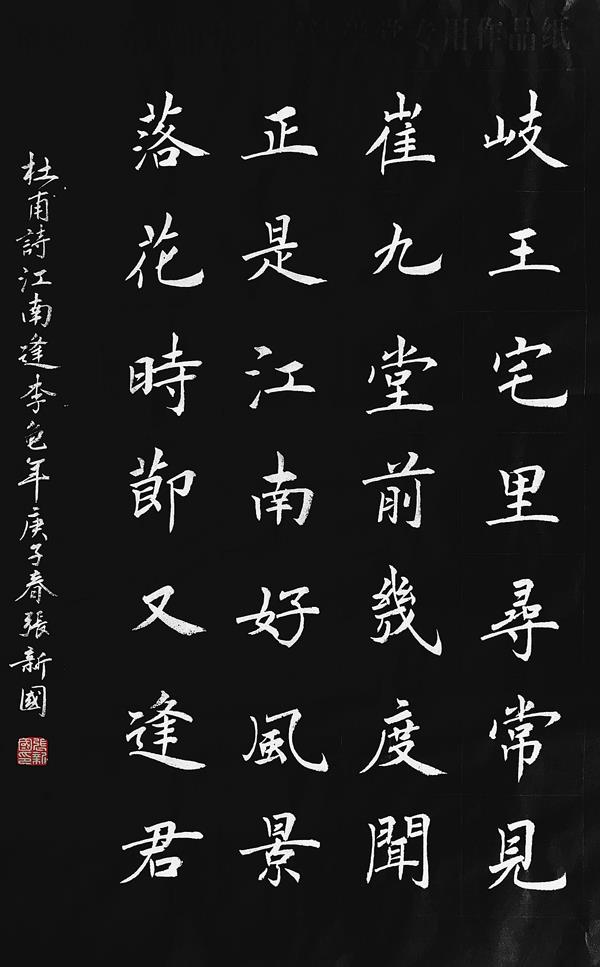 专用作品纸
岐王宅里尋常見
崔九堂前幾度聞
正是江南好風景
落花時節又逢君
杜甫詩江南逢李龟年庚子春張新國
張新國印